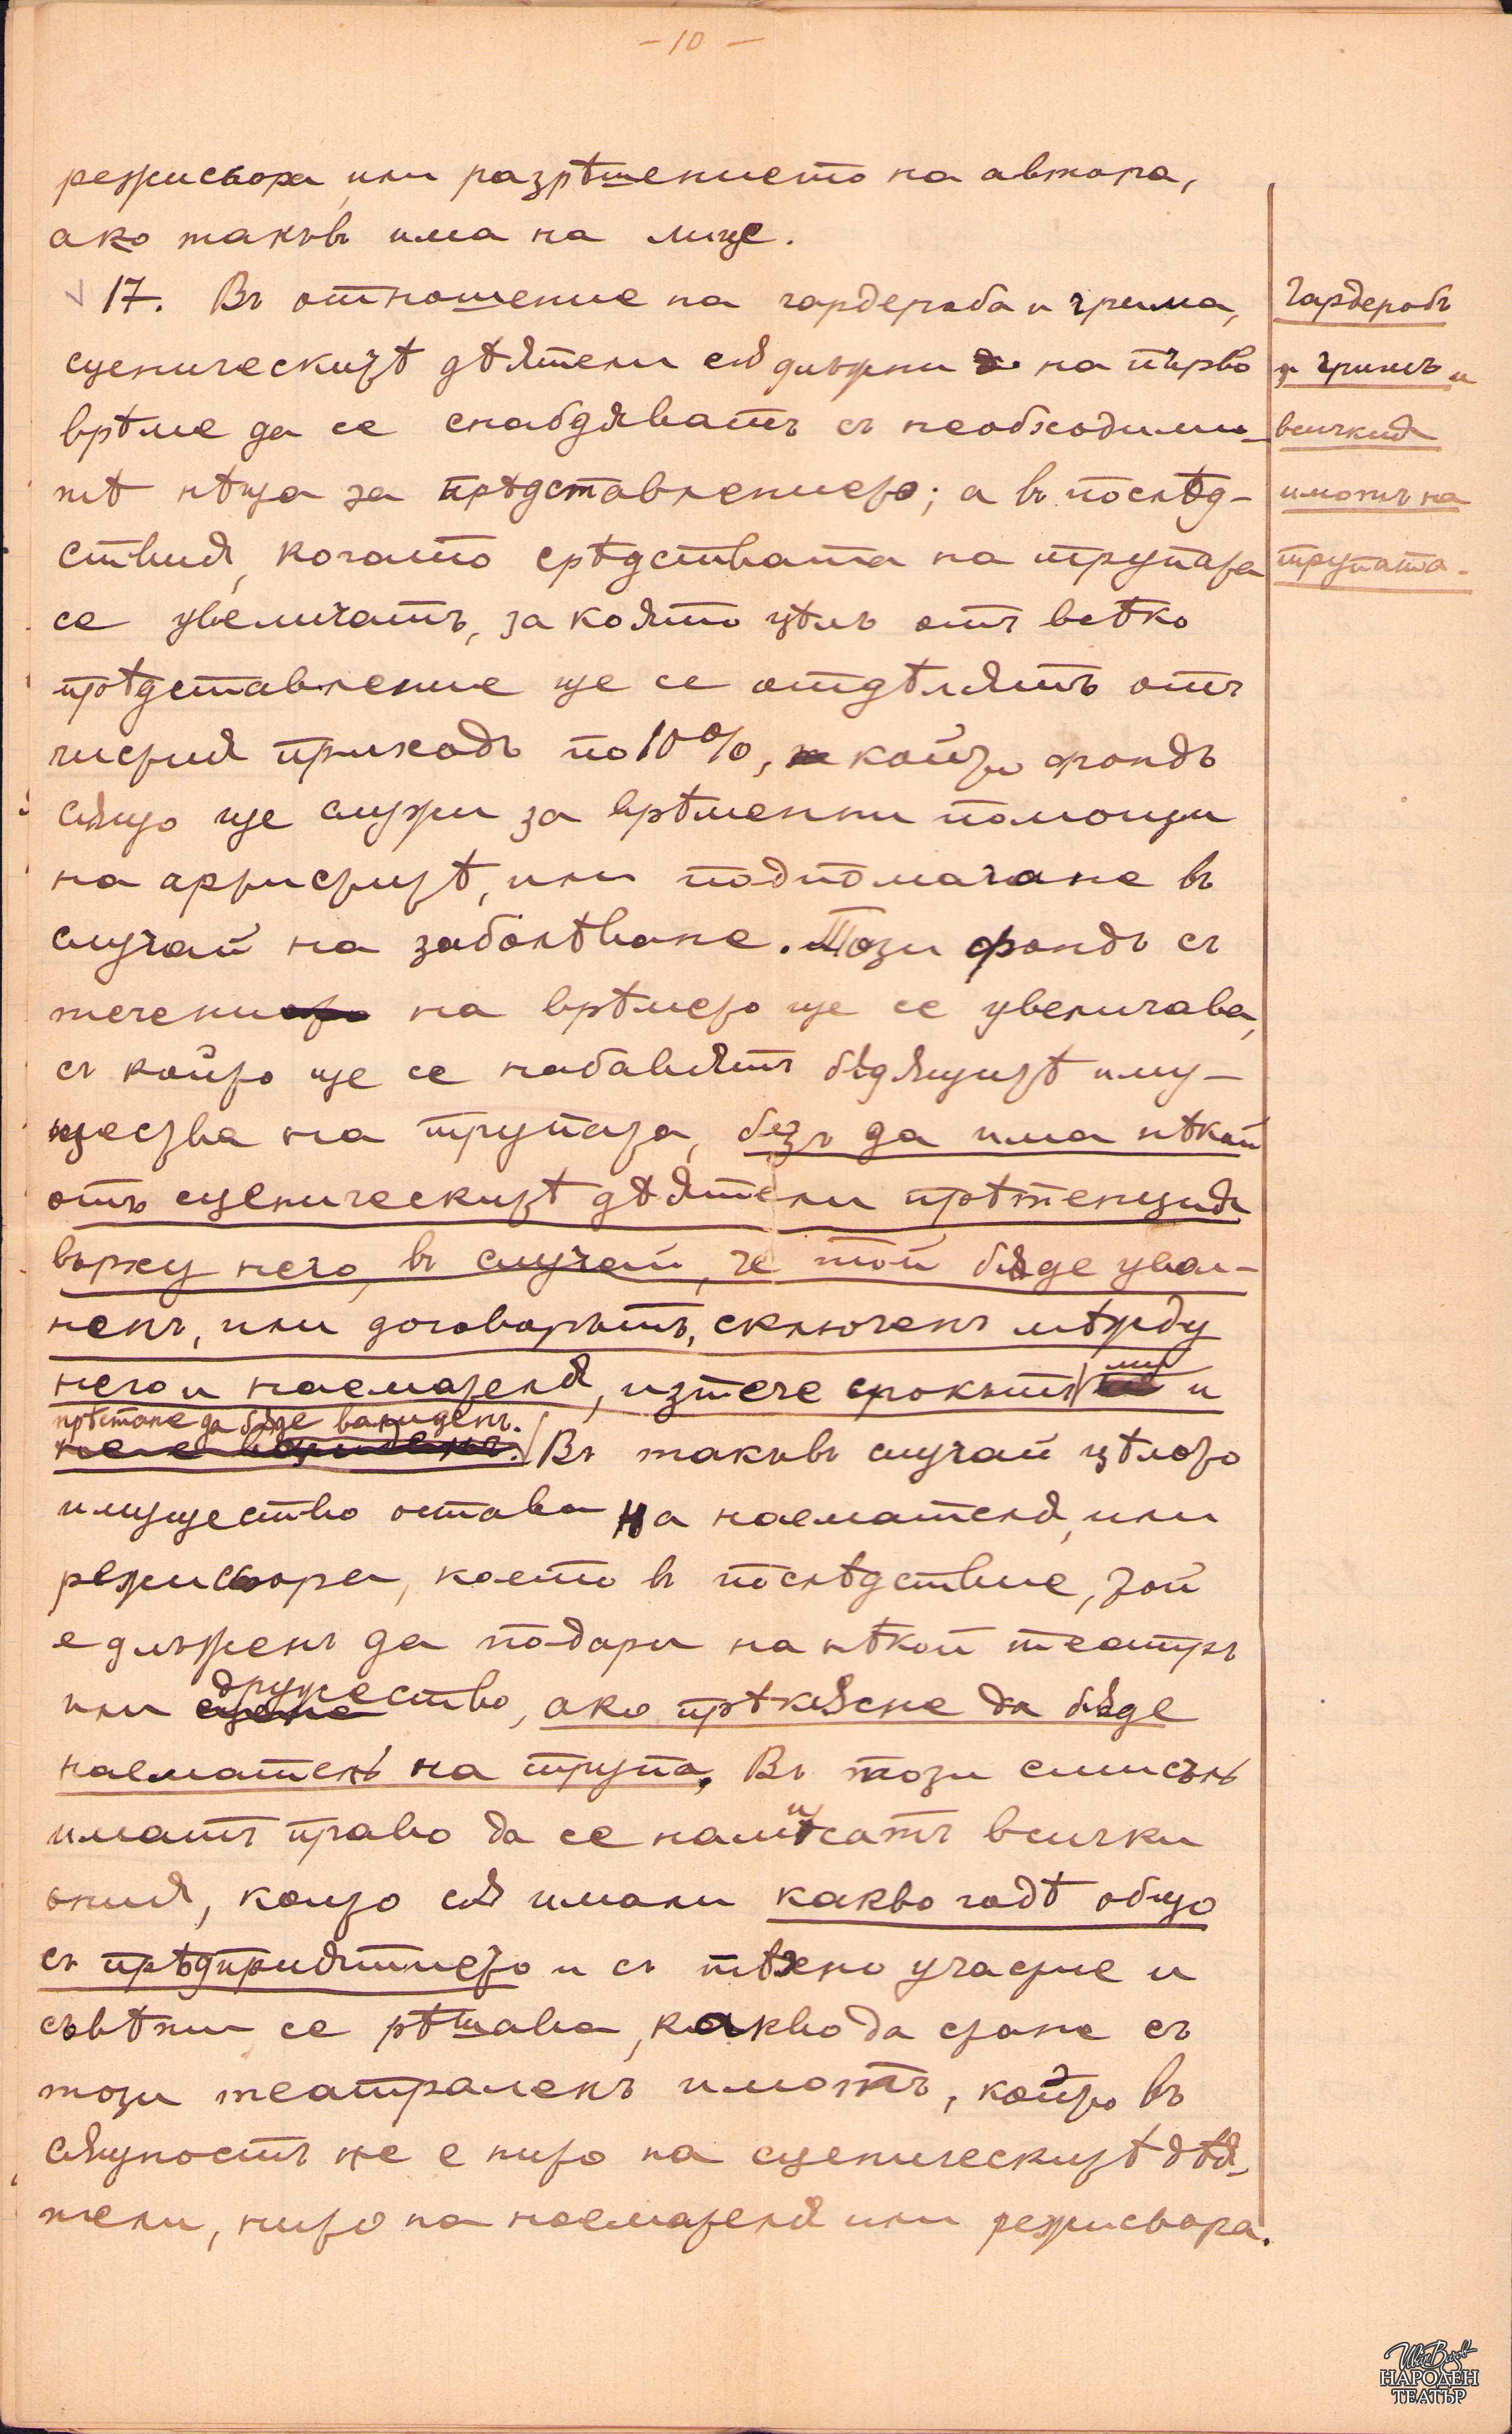 – 10 –
режисьора, или разрѣшението на автора,
ако такъвъ има на лице.
17. Въ отношение на гардероба и грима,
сценическитѣ дѣятели сѫ длъжни на първо
врѣме да се снабдяватъ съ необходими-
тѣ нѣща за прѣдставлението; а въ послѣд-
ствия, когато срѣдствата на трупата
се увеличатъ, за която цѣль отъ всѣко
прѣдставление ще се отдѣлятъ отъ
чистия приходъ по 10%, който фондъ
сѫщо ще служи за врѣменни помощи
на артиститѣ, или подпомагане въ
случай на заболѣване. Този фондъ съ
течение на врѣмето ще се увеличава,
съ който ще се набавятъ бѫдящитѣ иму-
щества на трупата, безъ да има нѣкой
отъ сценическитѣ дѣятели прѣтенция
върху него, въ случай, че той бѫде увол-
ненъ, или договорътъ, сключенъ мѣжду
него и наемателя, изтече срокътъ му и
прѣстане да бѫде валиденъ.
Въ такъвъ случай цѣлото
имущество остава на наемателя, или
режисьора, което въ послѣдствие, той
е длъженъ да подари на нѣкой театръ
или дружество, ако прѣкѫсне да бѫде
наематель на трупа. Въ този смисълъ
иматъ право да се намѣсятъ всички
ония, които сѫ имали какво годѣ общо
съ прѣдприятието и съ тѣхно участие и
съвѣти се рѣшава, какво да стане съ
този театраленъ имотъ, който въ
сѫщность не е нито на сценическитѣ дѣя-
тели, нито на наемателя или режисьора.
Гардеробъ
гримъ и
всичкия
имотъ на
трупата.
Иван Вазов
НАРОДЕН
ТЕАТЪР